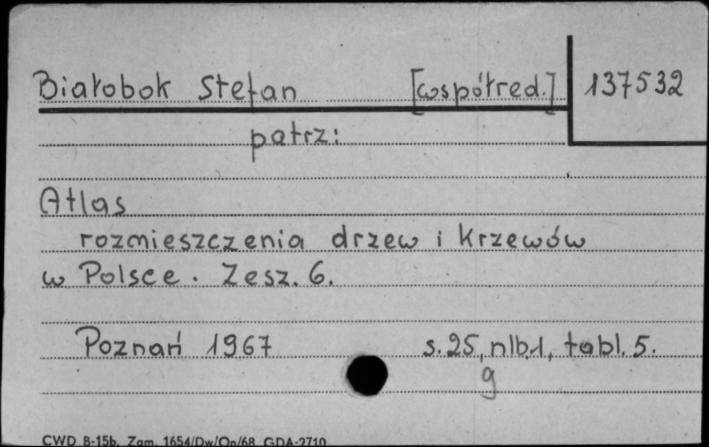 Białobok Stefan [współred.] 137532
patrz:
Atlas
rozmieszczenia drzew i krzewów
w Polsce. Zesz. 6.
Poznań 1967 s. 25, nlb.1, tabl. 5.
g
CWD B-15b. Zam. 1654/Dw/On/68 GDA-2710